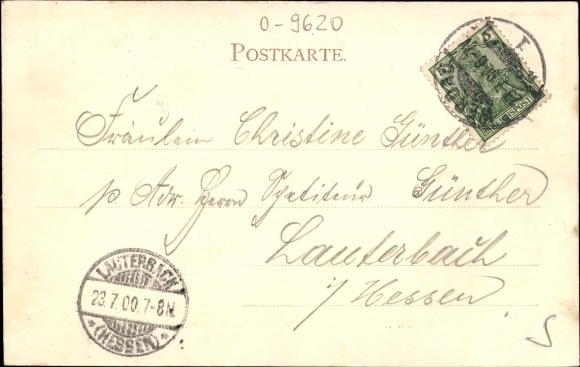 0-9620
POSTKARTE.
Fräulein Christine Günther
p Adr. Herrn Spediteur Günther
Lauterbach
i/Hessen
LAUTERBACH
23.7.00.7-8N.
*(HESSEN)*